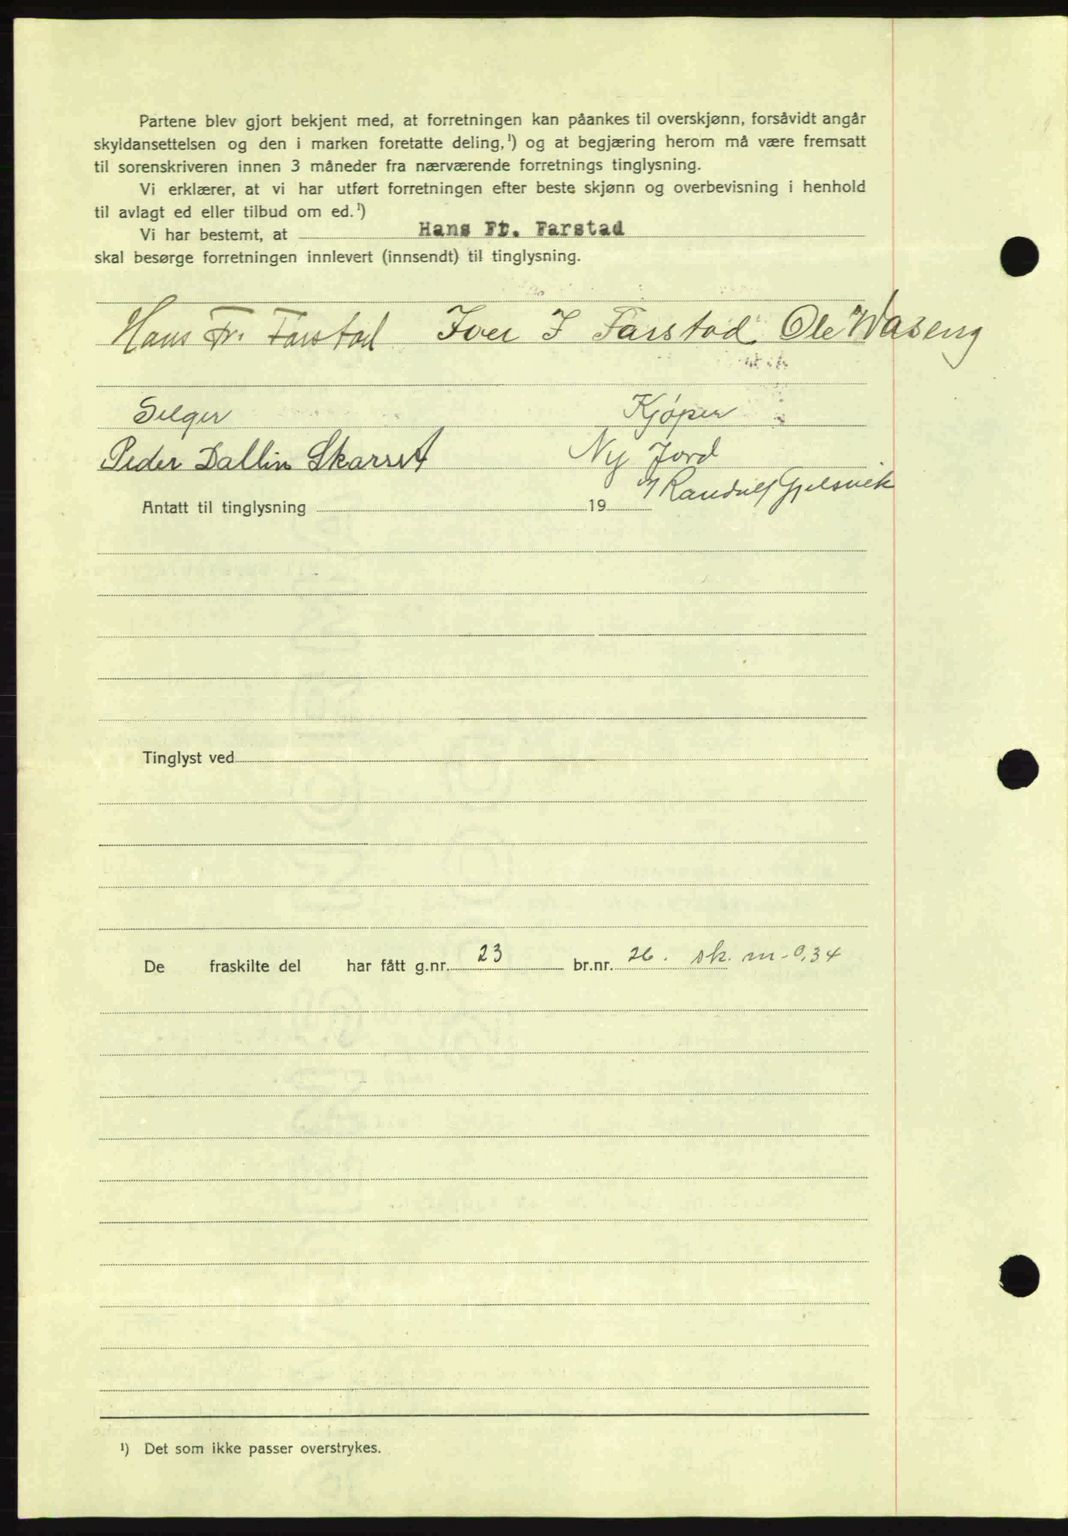 Partene blev gjort bekjent med, at forretningen kan påankes til overskjønn, forsåvidt angår
skyldansettelsen og den i marken foretatte deling,¹) og at begjæring herom må være fremsatt
til sorenskriveren innen 3 måneder fra nærværende forretnings tinglysning.
Vi erklærer, at vi har utført forretningen efter beste skjønn og overbevisning i henhold
til avlagt ed eller tilbud om ed.¹)
Vi har bestemt, at Hans Fr. Farstad
skal besørge forretningen innlevert (innsendt) til tinglysning.
Hans Fr. Farstad Iver I Farstad Ole Waseng
Selger Kjøper
Peder Dallin Ny Jord
Randulf Gjelsvik
Antatt til tinglysning 19
Tinglyst ved
De fraskilte del har fått g.nr. 23 br.nr. 26. sk. m-0,34
¹) Det som ikke passer overstrykes.